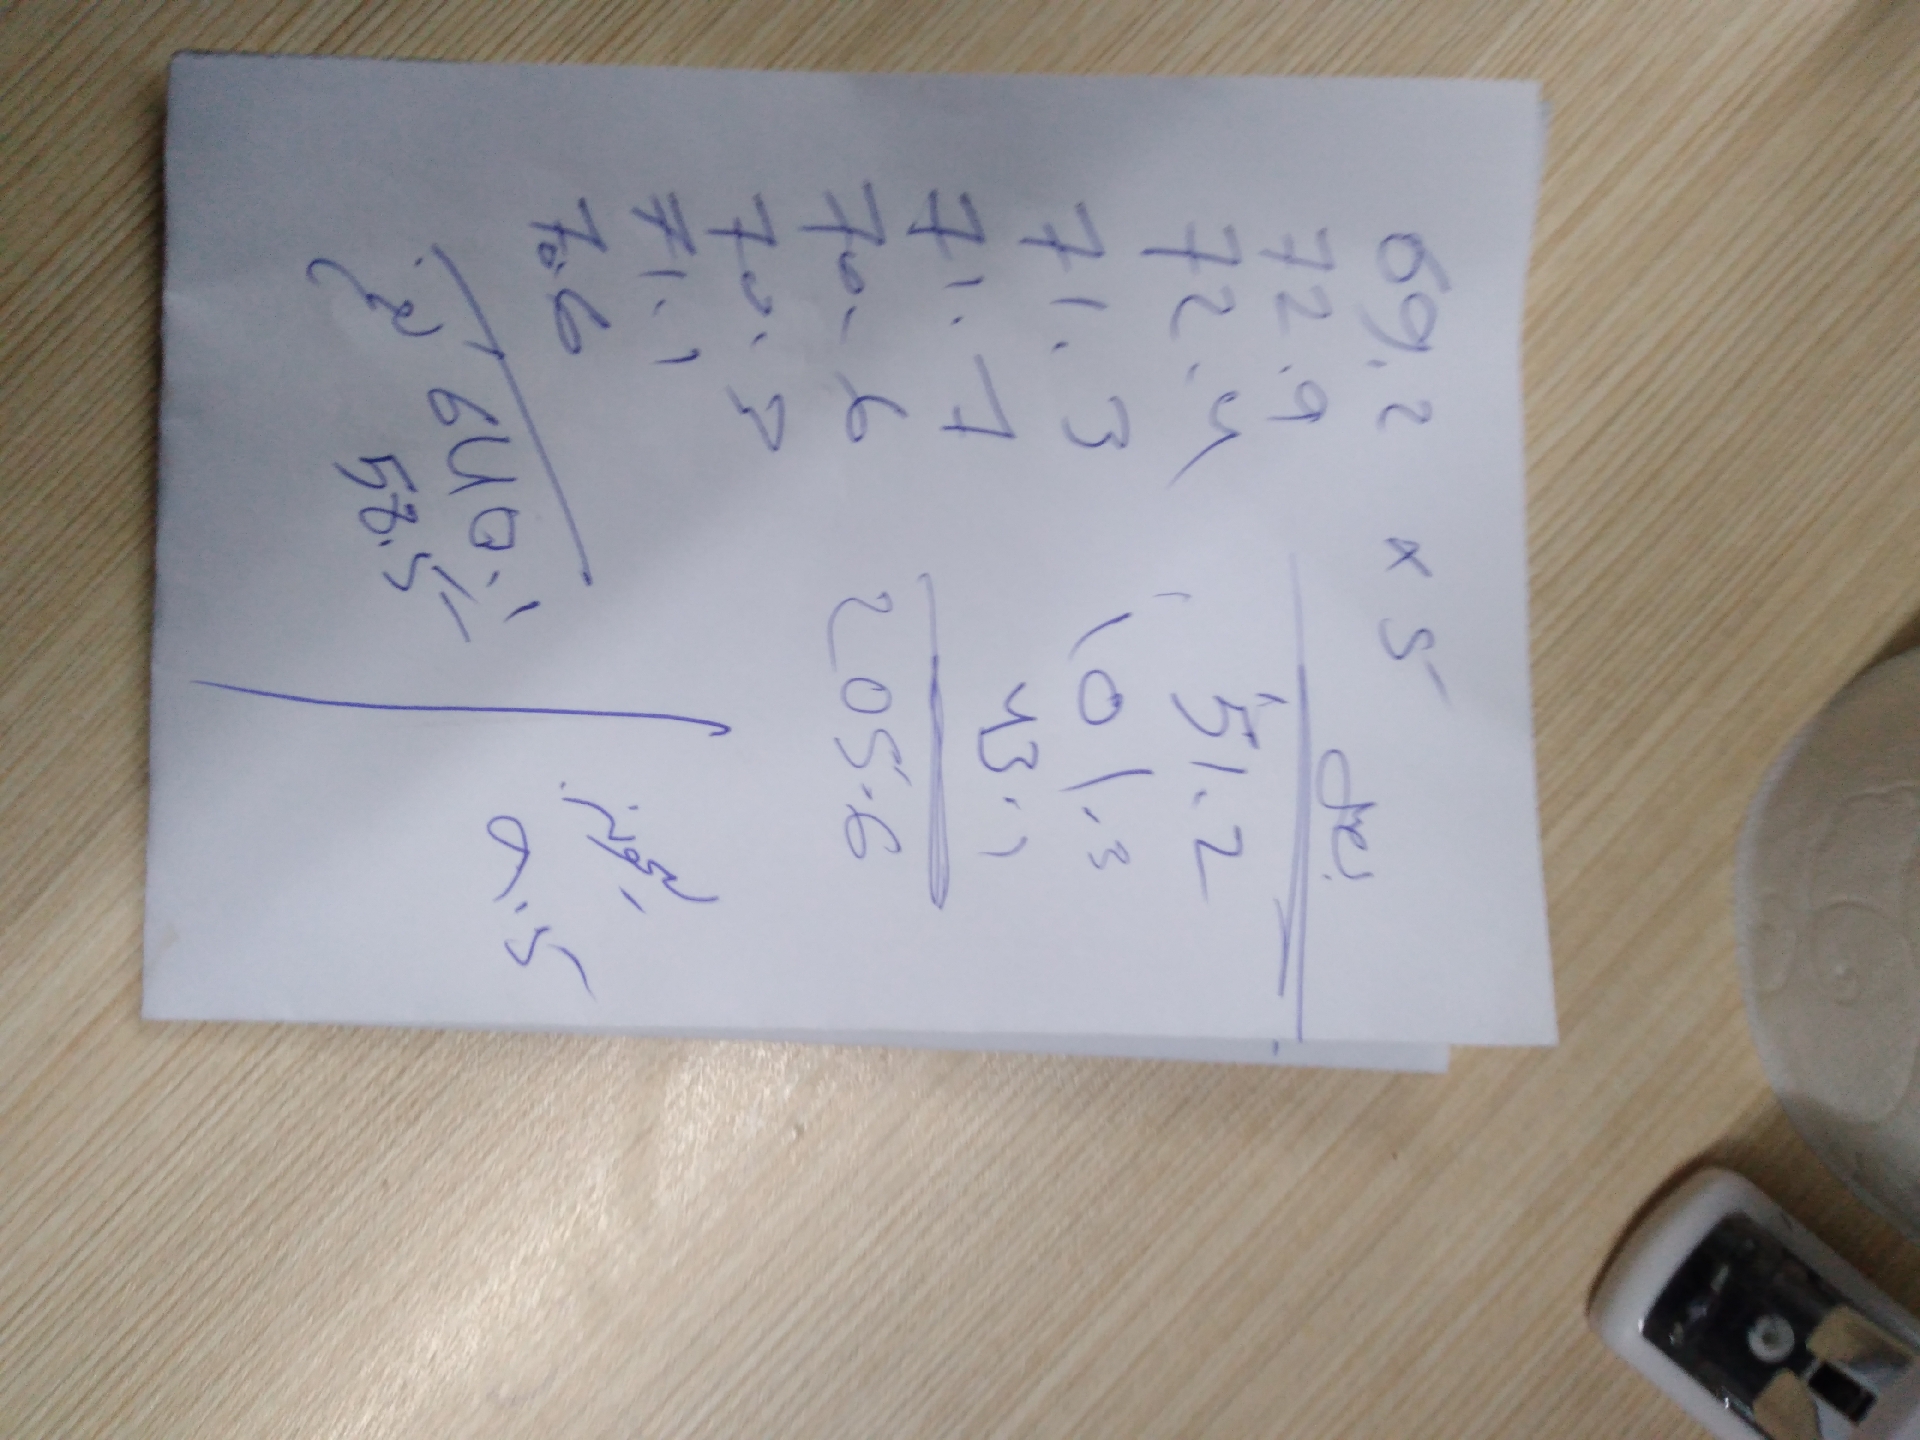 69.2 x 5
72.9
72.4
71.3
71.7
70.6
70.3
71.1
70.6
640.1
58.5
51.2
101.3
43.1
205.6